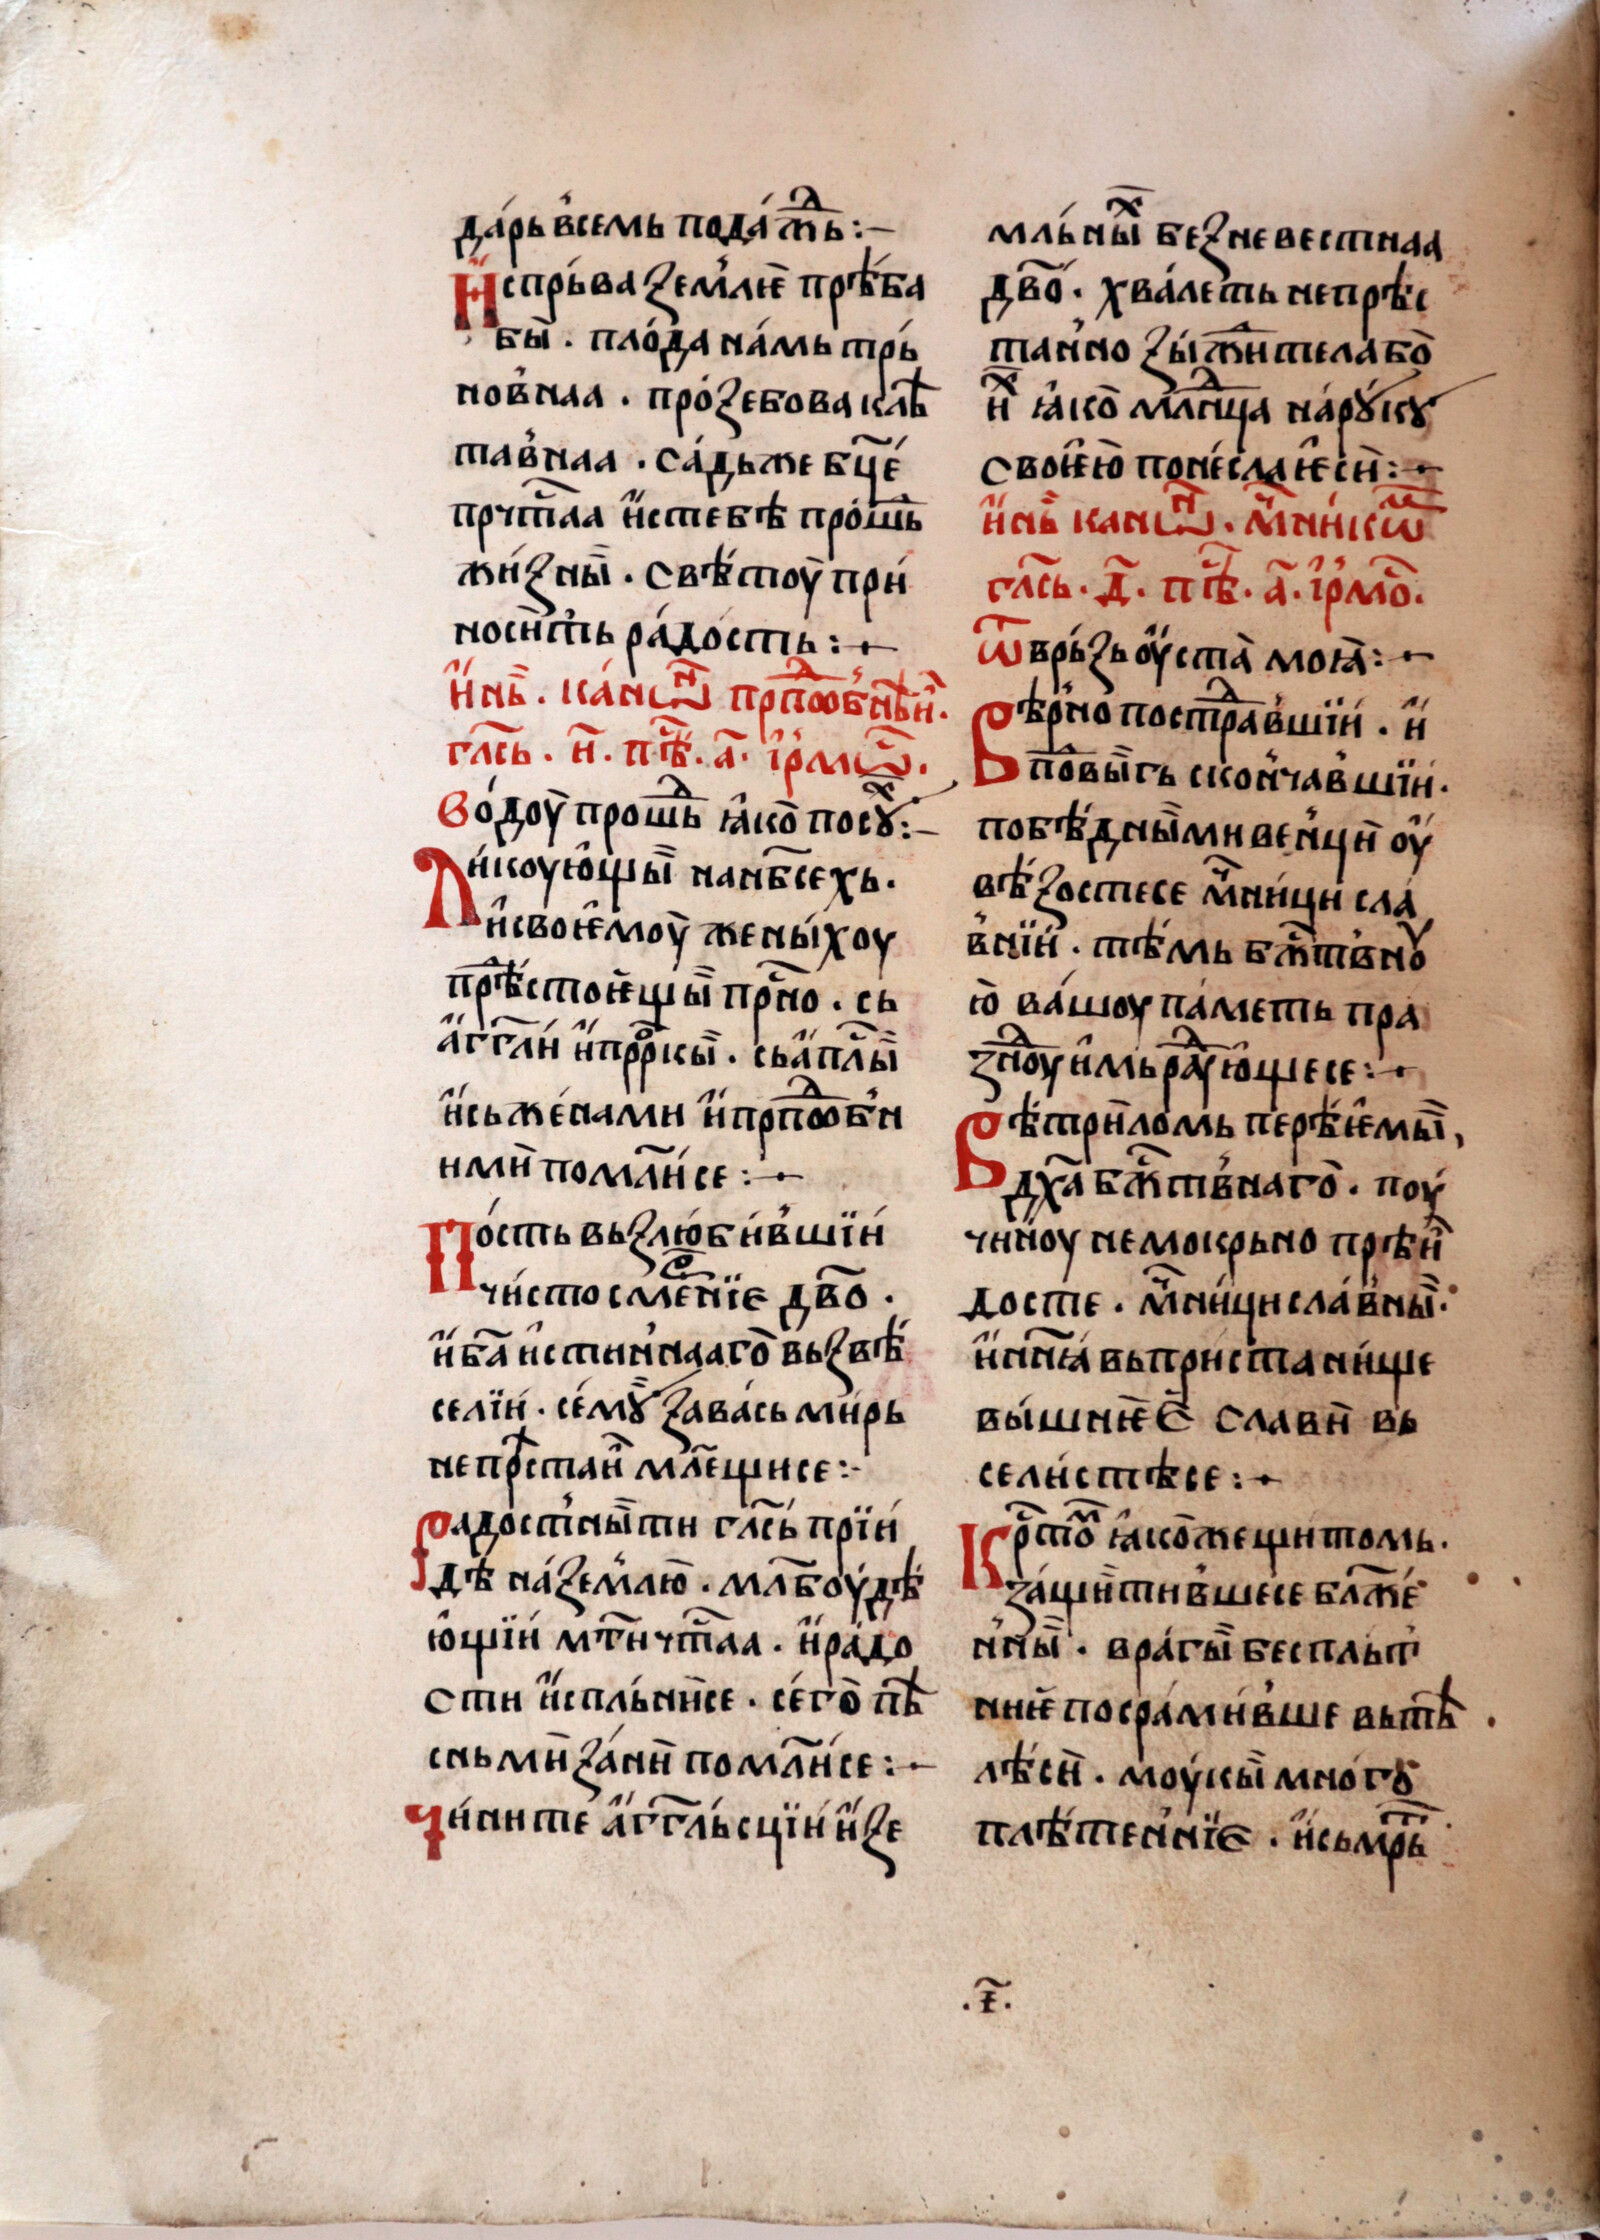 да́рь в҆семь пода́ жⷣь :–
И҆спрь́ва ꙁем҆лꙗ̀ прѣ́ба
бы̏ . пло́да на́мь трь́
нов҆наа . про́ꙁебова клѣ
тав҆наа . са́дьже бц҃е́
прчⷭ҇таа и҆стебѣ про́шь
жи́ꙁны̏ . свѣ́тоу̏ при́
носи҆ть ра́дость :–
и҆нь . ка́нѡⷩ҇ прⷣпⷪ҇обнѣи҆ .
гла҃сь . и҃ . пѣⷭ҇ . а҃ . і҆рмѡⷭ҇ .
Во́доу̏ прошьⷣ ꙗ҆ко̀ посꙋⷯ :–
Ли́коую҆щы̏ нанб҃сехь .
и҆своѥ҆моу̏ жены́хоу
прѣⷣ́стоѥ҆щы̏ прⷭ҇но . сь
а҆гг҃ли́ и҆прⷪ҇ркы̏ . сьа҆пⷭ҇лы̏
и҆сьже́нами и҆прⷣпⷪ҇об҆н
ими̏ помл҃и́се :–
По́сть вьꙁлю́би́в҆шїи́
чи́сто смⷭ҇е́нїе дв҃о̀ .
и҆ б҃а и҆стин҆наго̀ вьꙁвѣ́
селїи́ . се́мꙋ̏ ꙁава́сь ми́рь
непрⷭ҇таи̏ мл҃е́щисе :-
Радост҆ны̏ти гл҃сь прїи́
дѣ на́ꙁем҆лю̀ . мл҃боу́дѣ́
ю҆щїи́ мт҃и чⷭ҇таа . и҆ра́до
сти и҆спль́ни҆се . се́го̀ пѣ
сньми̏ ꙁа́ни̏ помл҃и́се :–
Чи́ните а҆гг҃ль́сцїи́ и҆ꙁе
мль́ны̏ⷯ беꙁневестнаа
дв҃о́ . хва́леть непрѣ́с
тан҆но ꙁы́жⷣитела бо̀
и̏ⷯ ꙗ҆ко̀ млⷣнца на́рꙋ́кꙋ
своѥ҆ю̀ поне́сла ѥ҆си̏ :–
и҆нь канѡⷩ҇ . мⷱ҇ни́кѡⷨ
гла҃сь . д҃ . пѣⷭ҇ . а҃ . і҆рмо̀ⷭ .
Ѿврь́ꙁь оу҆ста̀ моꙗ̀ :–
Вѣ́р҆но постраⷣв҆шїи́ . и҆
по́двы̏гь скон҆чав҆шїи́ .
побѣ́дны̏ми вен҆ци̏ оу҆
вѣ́ꙁостесе мⷱ҇ни́ци сла́
в҆нїи́ . тѣ́мь бжⷭ҇тв҆нꙋ
ю̀ ва́шоу па́меть пра
ꙁⷣноу и҆мь раⷣую҆щесе :–
Вѣ́три́ломь перѣ́ѥ҆мы̏ ,
дх҃а бжⷭ҇тв҆наго̀ . поу́
чи́ноу немокрьно прѣи̏
досте . мⷱ҇ни́ци сла́в҆ны̏ .
и҆нн҃ꙗ́ вьпри́стани́ще
вы́шниѥ̀ е҃ славн̏ вь
сели́стѣсе :–
Крⷭ҇томⷨ ꙗ҆ко̀жещитомь .
ꙁа́щи̏тив҆шесе блаже́
н҆ны̏ . вра́гы̏ бесплът҆
ниѥ̀ посра́ми́в҆ше вьтѣ
лѣ́си̏ . моу́кы̏ мно́гꙋ
плѣ́тен҆нїе . и҆сьмрⷭ҇ть
.і҃.